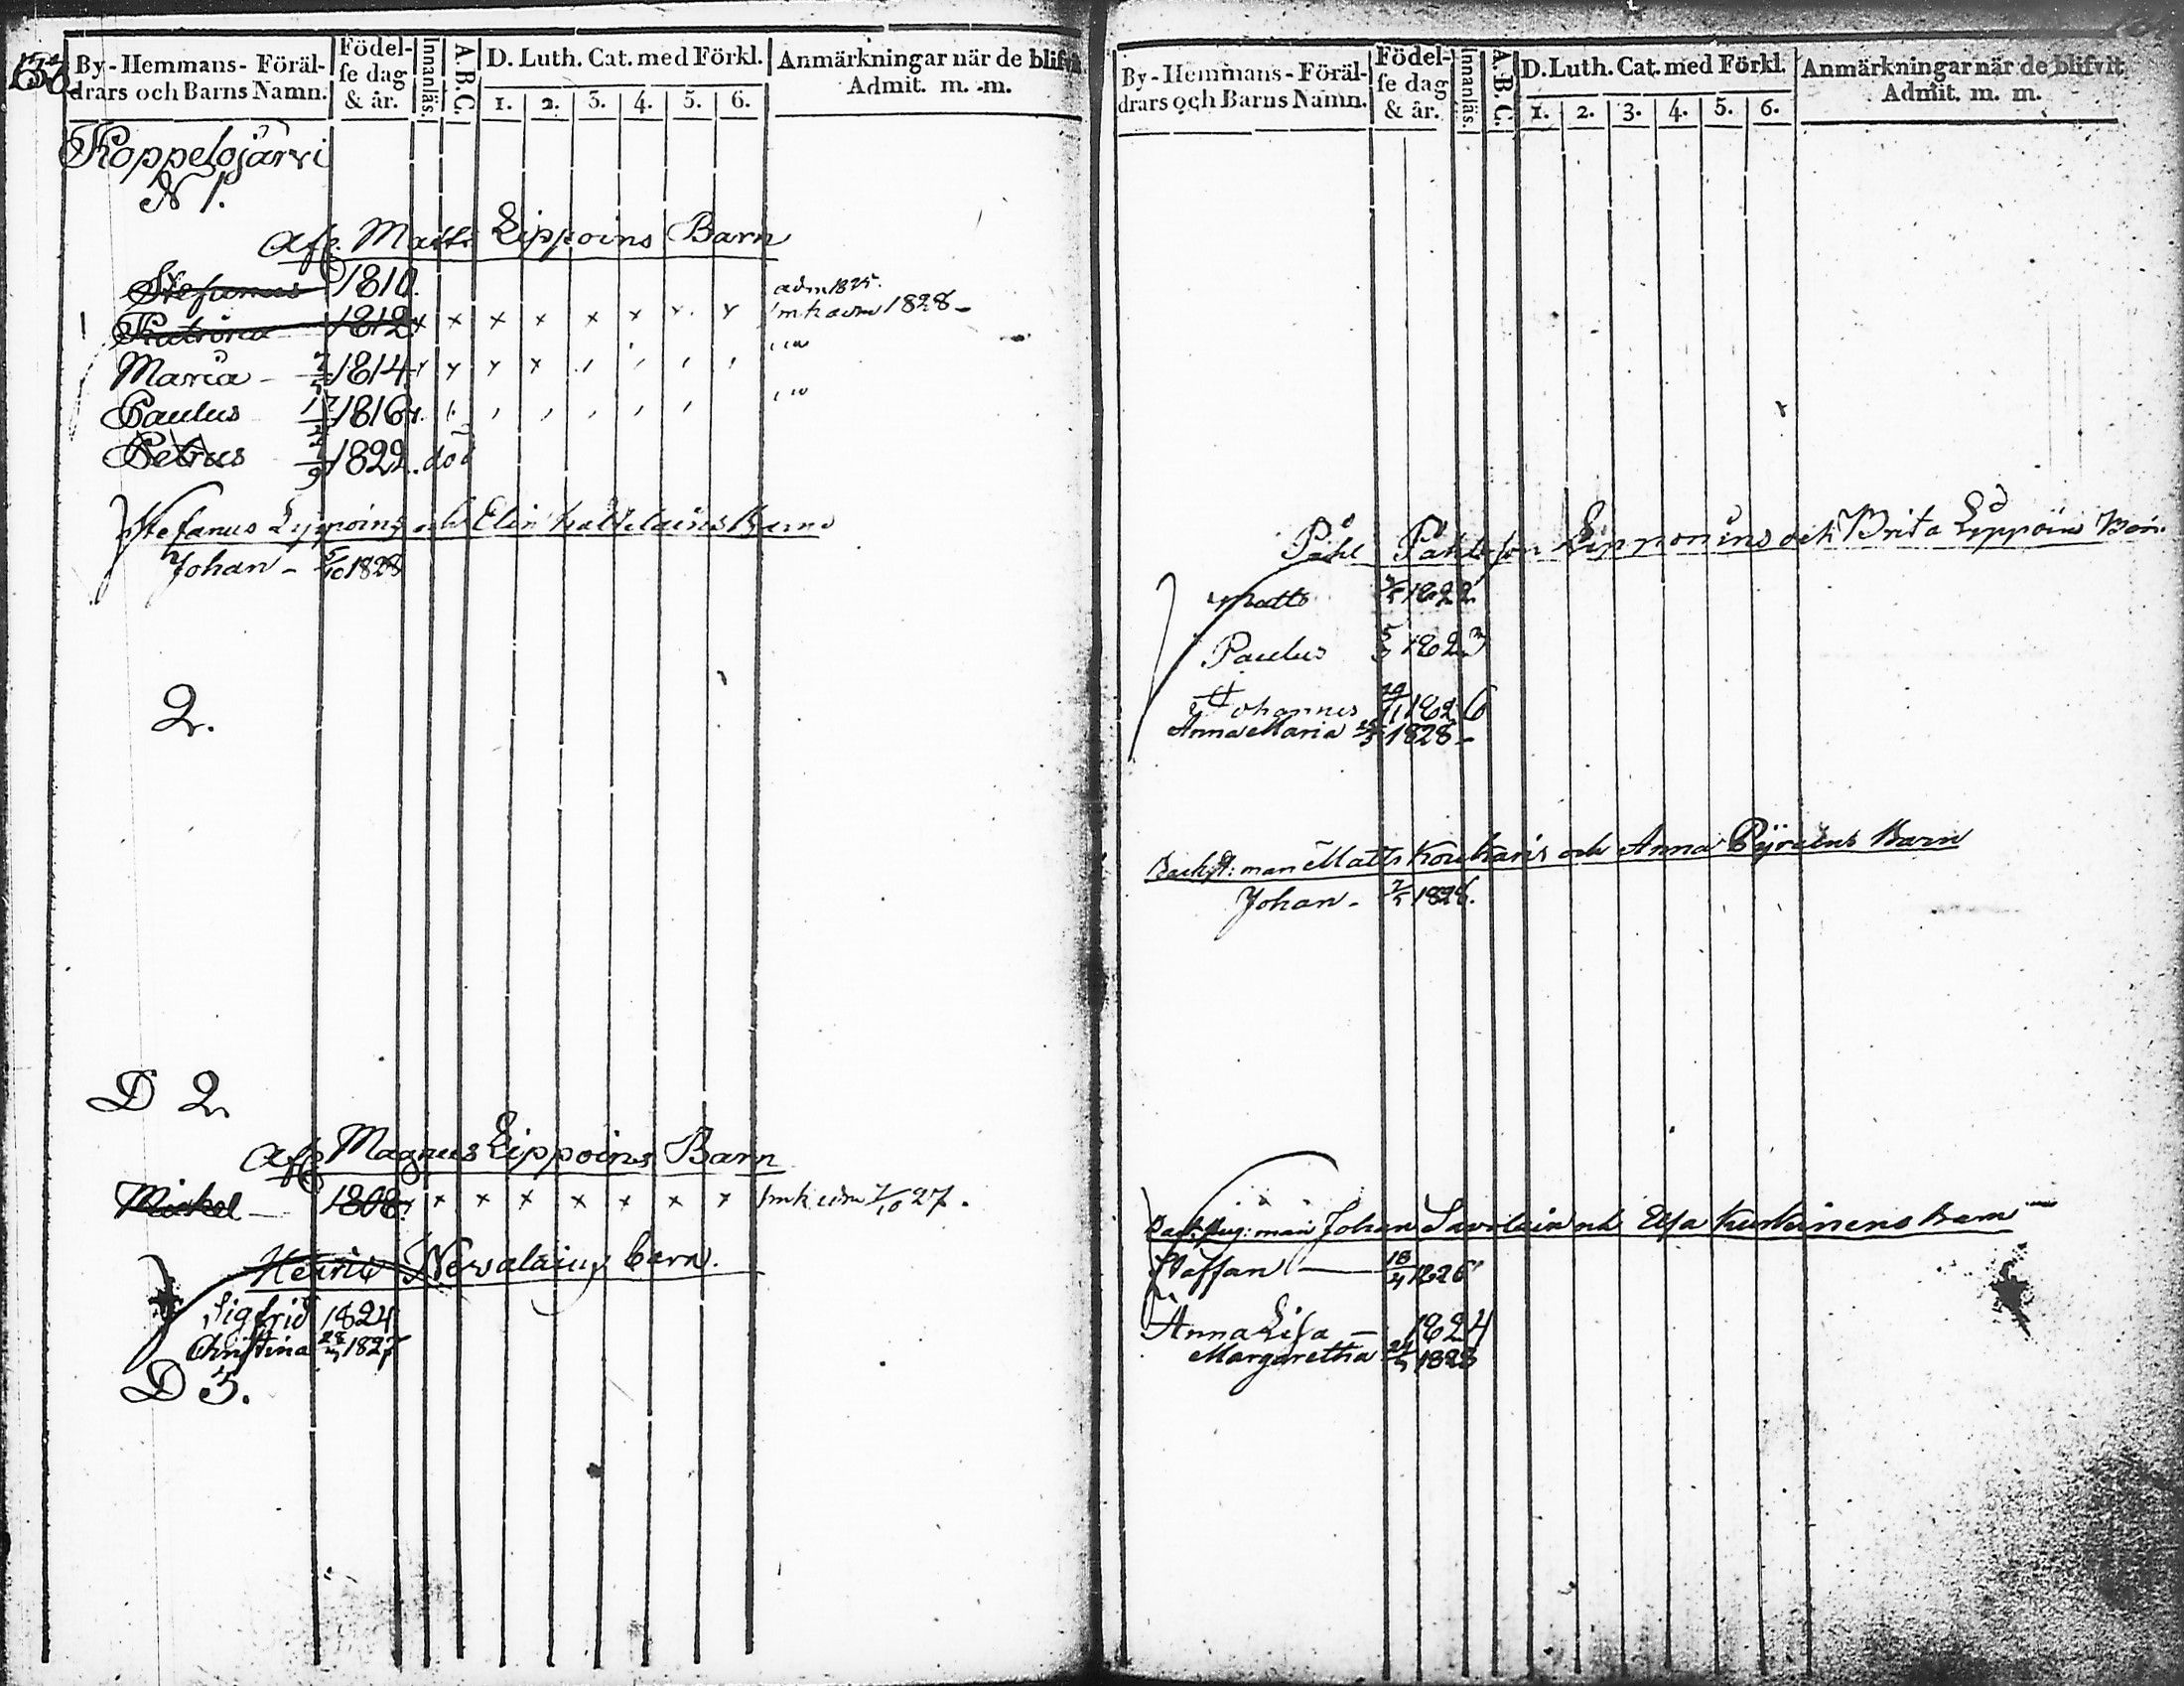 By-Hemmans-Föräl-
drars och Barns Namn.
Födel-
se dag
& år.
Innanläs.
A.B.C.
D. Luth. Cat. med Förkl.
1. 2. 3. 4. 5. 6.
Anmärkningar när de blifvit
Admit. m. m.
Koppelojärvi
N 1.
Afl. Matts Lippoins Barn
Stefanus 1810. adm 1825.
Katrina 1812 x x x x x x x x adm 1828 -
Maria - 1814
Paulus 1816
Petrus 1822. död
Stefanus Lyppoins och Elin Barn
Johan - 5/10 1828
2.
D 2.
Afl. Magnus Lippoins Barn
Mickel - 1808. x x x x x x x adm 7/10 27.
Henric Nevalains barn.
Sigfrid 1824
Christina 1827
D 3.
By-Hemmans-Föräl-
drars och Barns Namn.
Födel-
se dag
& år.
Innanläs.
A.B.C.
D. Luth. Cat. med Förkl.
1. 2. 3. 4. 5. 6.
Anmärkningar när de blifvit
Admit. m. m.
Påhl Påhlsson Lipponens och Brita Lyppoins Barn
Matts 1822
Paulus 1823
Johannes 1826
Anna Maria 1828 -
Backst: man Matts och Anna Barn
Johan - 1828.
man Johan Savolain och Elsa Barn
Staffan - 18/4 1826
Anna Lisa - 1824
Margaretha 1828